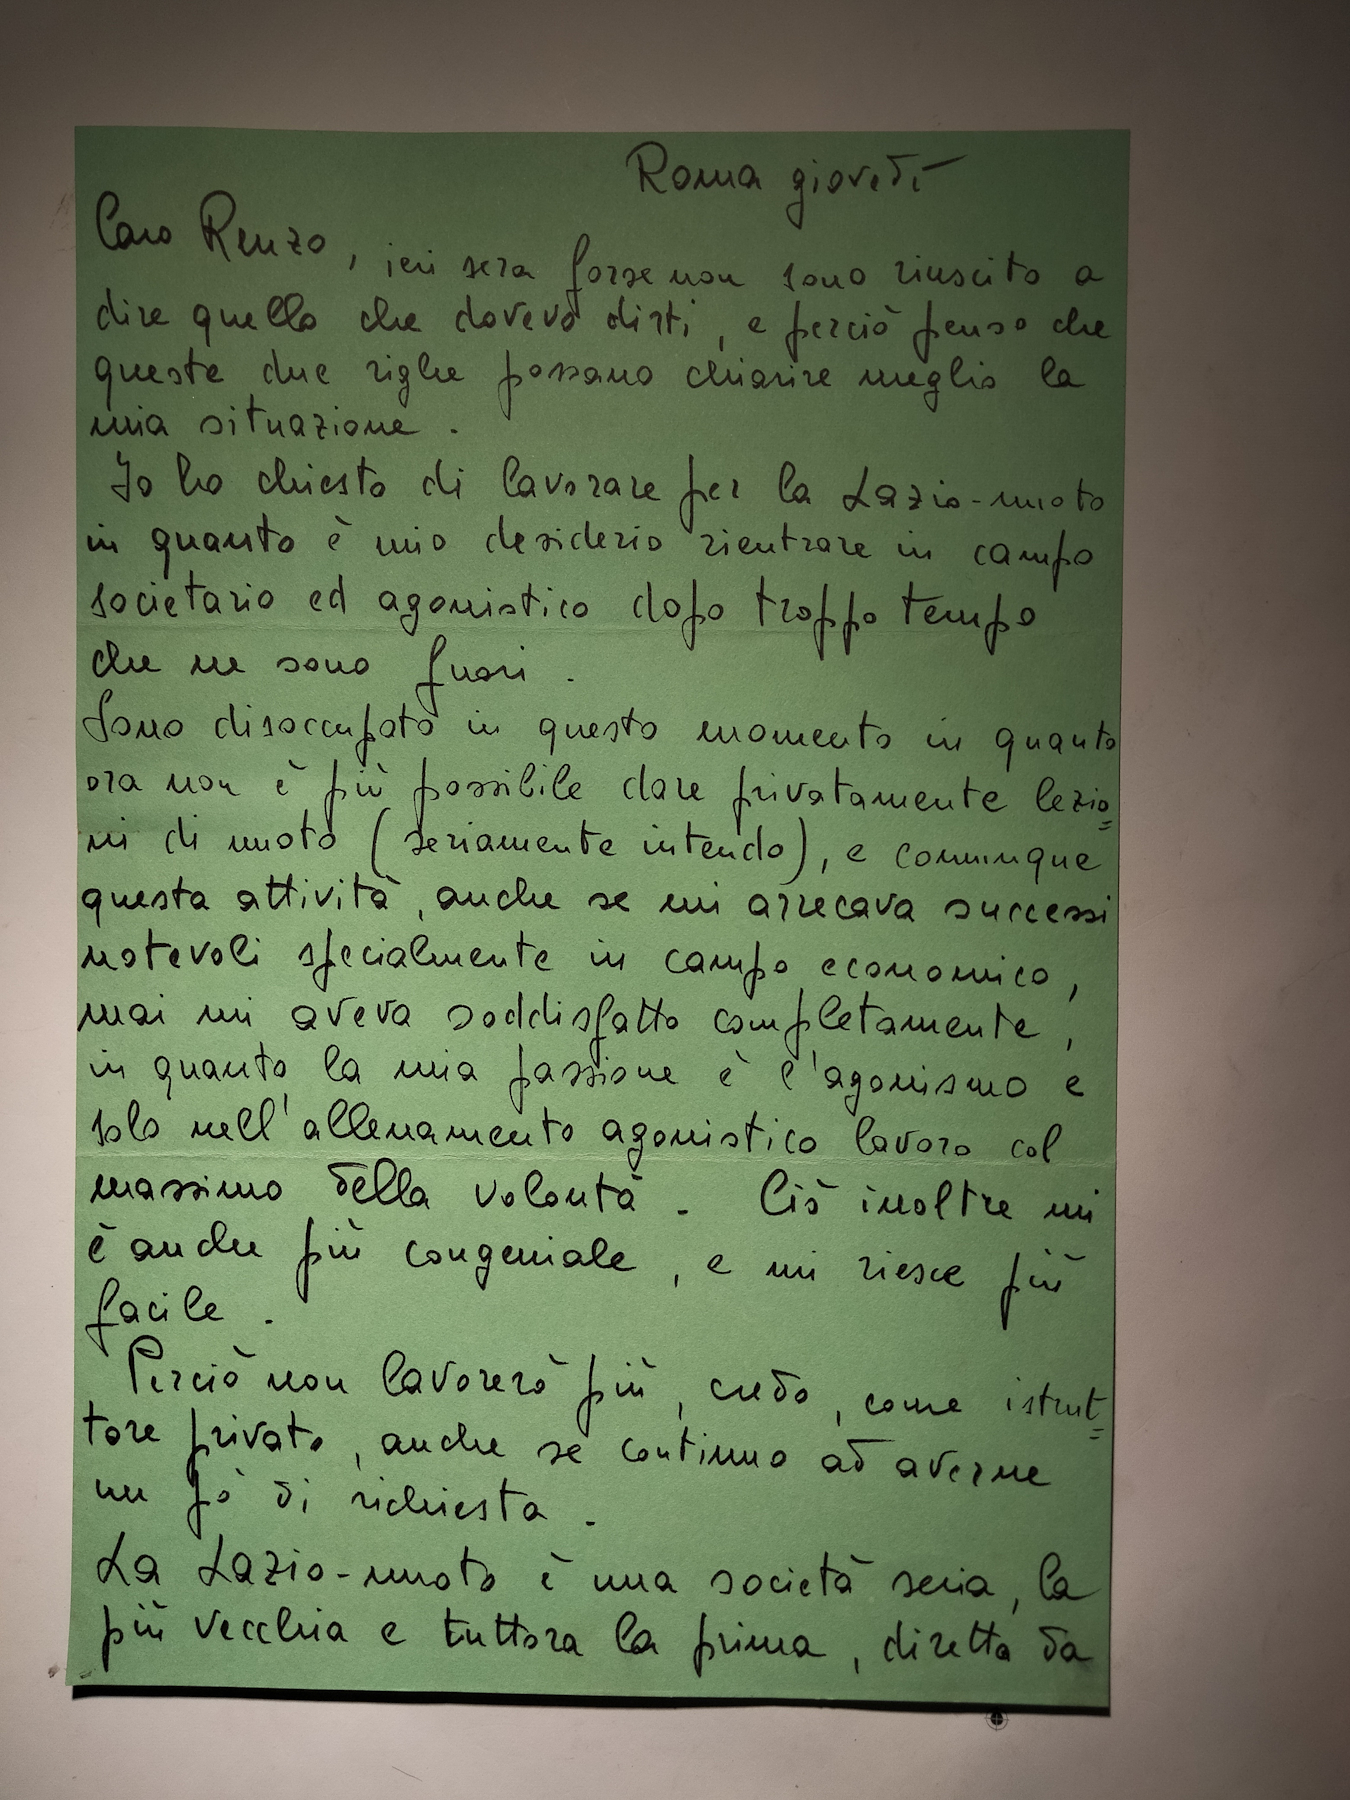 Roma giovedì
Caro Renzo, ieri sera forse non sono riuscito a
dire quello che dovevo dirti, e perciò penso che
queste due righe possano chiarire meglio la
mia situazione.
Io ho chiesto di lavorare per la Lazio-nuoto
in quanto è mio desiderio rientrare in campo
societario ed agonistico dopo troppo tempo
che ne sono fuori.
Sono disoccupato in questo momento in quanto
ora non è più possibile dare privatamente lezio=
ni di nuoto (seriamente intendo), e comunque
questa attività, anche se mi arrecava successi
notevoli specialmente in campo economico,
mai mi aveva soddisfatto completamente,
in quanto la mia passione è l'agonismo e
solo nell'allenamento agonistico lavoro col
massimo della volontà. Ciò inoltre mi
è anche più congeniale, e mi riesce più
facile.
Perciò non lavorerò più, credo, come istrut=
tore privato, anche se continuo ad averne
un pò di richiesta.
La Lazio-nuoto è una società seria, la
più vecchia e tuttora la prima, diretta da